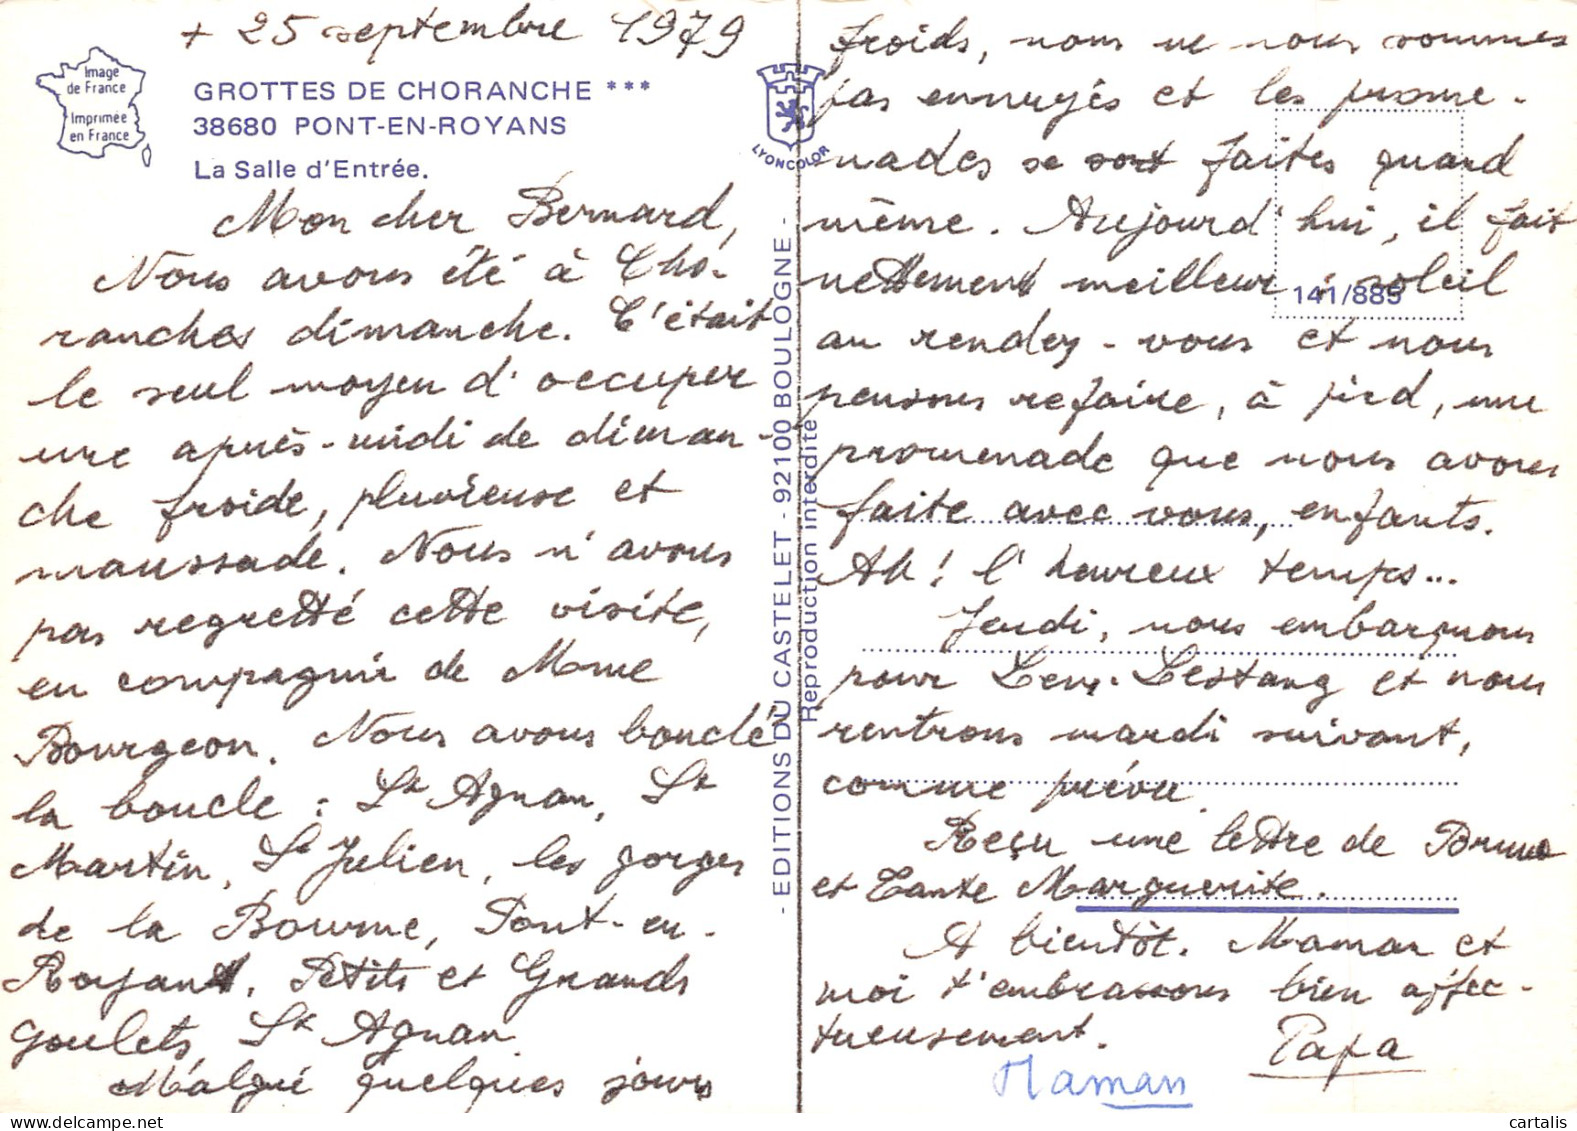 + 25 septembre 1979
Image
de France
Imprimée
en France
GROTTES DE CHORANCHE ***
38680 PONT-EN-ROYANS
La Salle d'Entrée.
Mon cher Bernard,
Nous avons été à Cho-
ranches dimanche. C'était
le seul moyen d'occuper
une après-midi de diman-
che froide, pluvieuse et
maussade. Nous n'avons
pas regretté cette visite,
en compagnie de Mme
Bourgeon. Nous avons bouclé
la boucle : St Agnan, St
Martin, St Julien, les gorges
de la Bourne, Pont-en-
Royans, Petits et Grands
Goulets, St Agnan.
Malgré quelques jours
LYONCOLOR
- EDITIONS DU CASTELET - 92100 BOULOGNE -
Reproduction interdite
froids, nous ne nous sommes
pas ennuyés et les prome-
nades se sont faites quand
même. Aujourd'hui, il fait
nettement meilleur : soleil
141/885
au rendez-vous et nous
pensons refaire, à pied, une
promenade que nous avons
faite avec vous, enfants.
Ah ! l'heureux temps...
Jeudi, nous embarquons
pour Lestang et nous
rentrons mardi suivant,
comme prévu.
Reçu une lettre de Bruno
et Tante Marguerite.
A bientôt. Maman et
moi t'embrassons bien affec-
tueusement.
Papa
Maman
cartalis